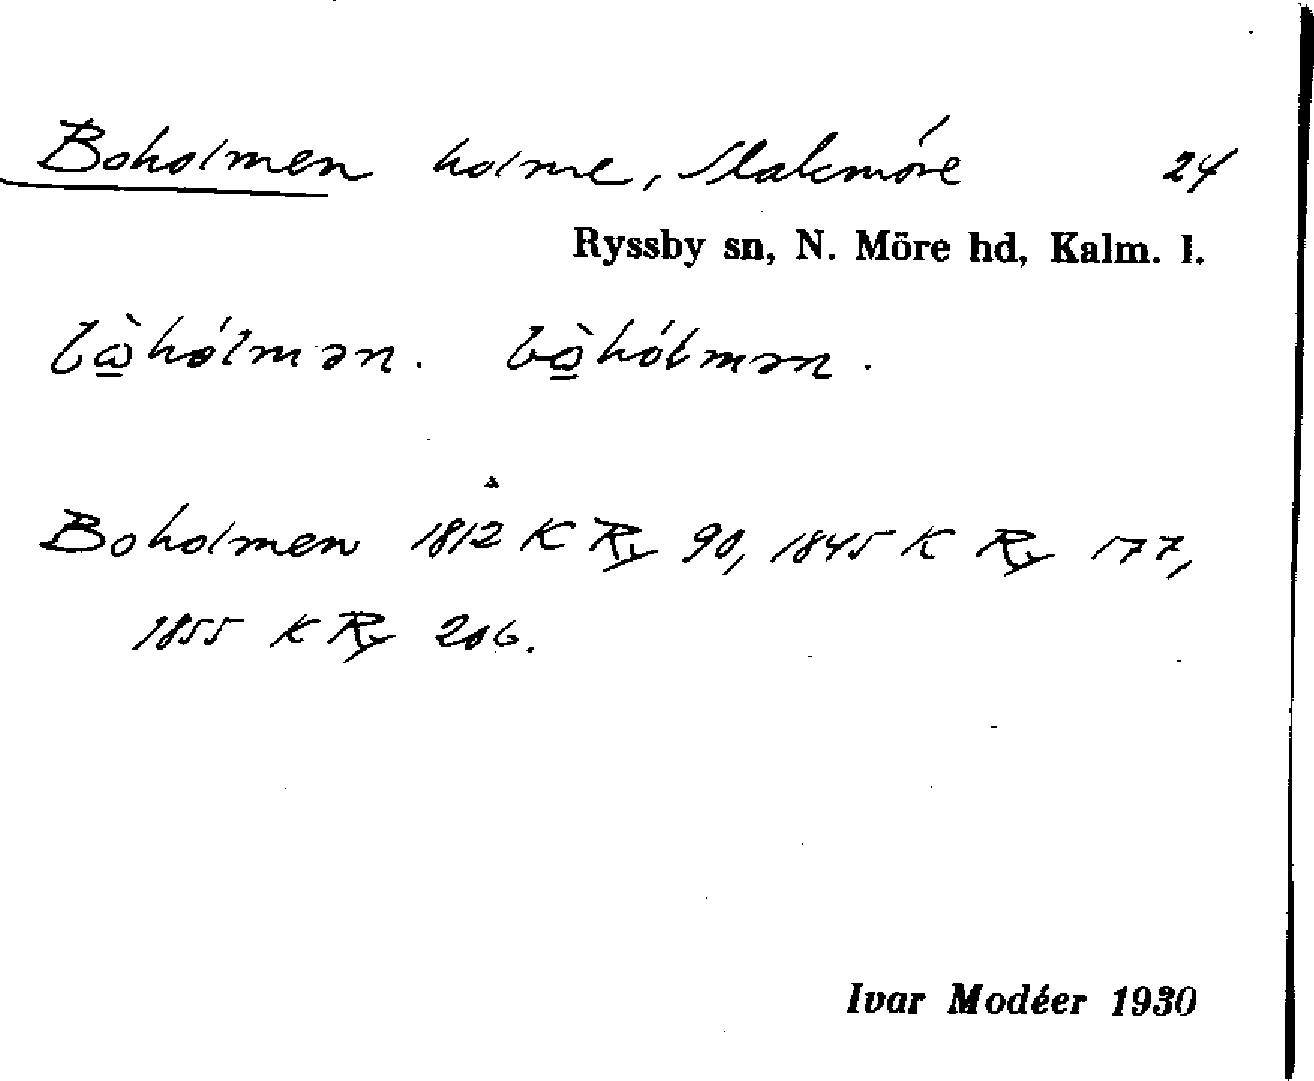 Boholmen holme, Slakmöre 24
Ryssby sn, N. Möre hd, Kalm. l.
bὼ̲hólmən. bὼ̲hólmən.
Boholmen 1812 K Ry 90, 1845 K Ry 177,
1855 K Ry 206.
Ivar Modéer 1930